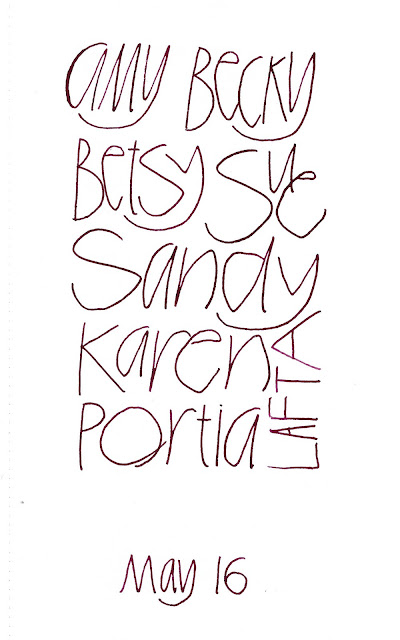 amy Becky
Betsy Sue
Sandy
Karen
Portia
LAFTA
May 16